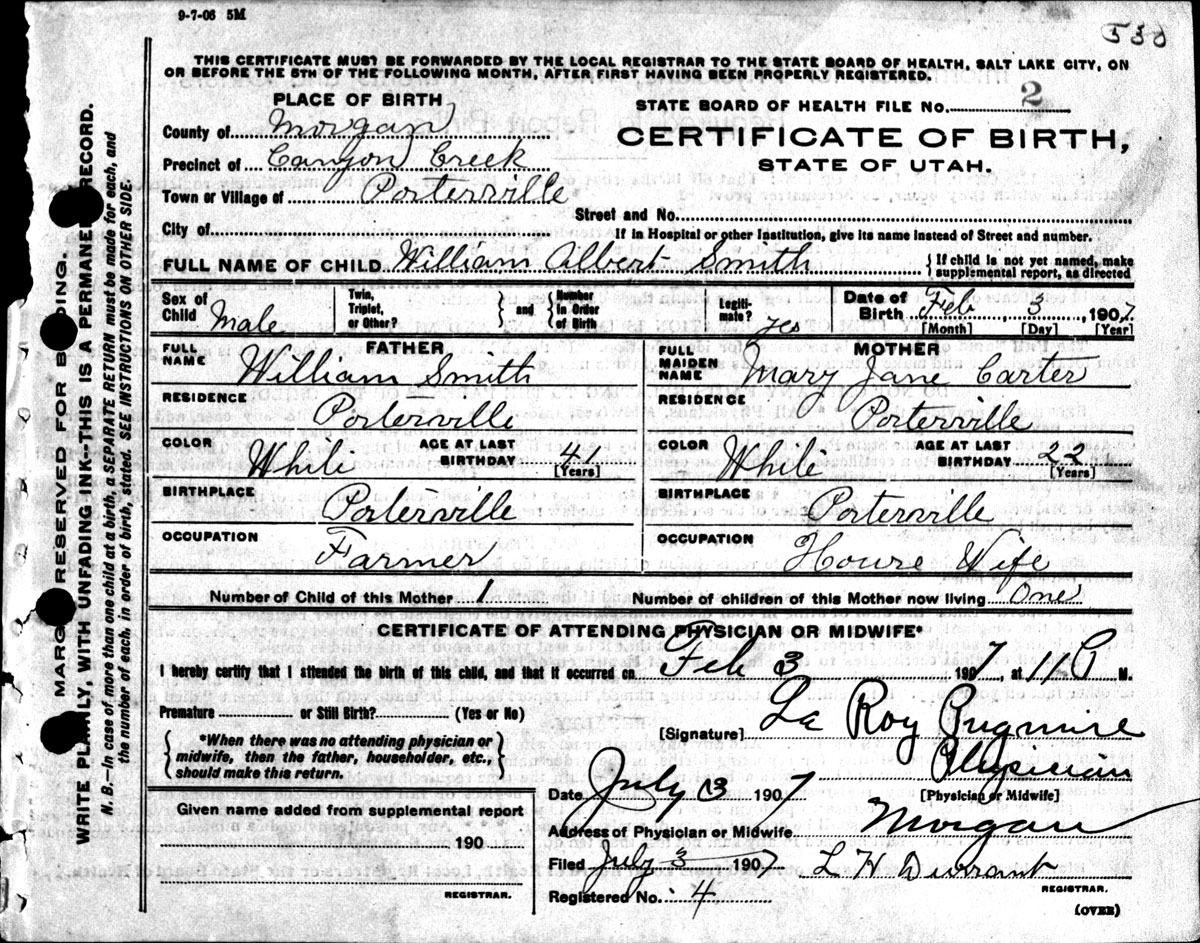 9-7-06 5M
530
THIS CERTIFICATE MUST BE FORWARDED BY THE LOCAL REGISTRAR TO THE STATE BOARD OF HEALTH, SALT LAKE CITY, ON
OR BEFORE THE 5TH OF THE FOLLOWING MONTH, AFTER FIRST HAVING BEEN PROPERLY REGISTERED.
PLACE OF BIRTH
County of Morgan
Precinct of Canyon Creek
Town or Village of Porterville
City of
STATE BOARD OF HEALTH FILE No. 2
CERTIFICATE OF BIRTH,
STATE OF UTAH.
Street and No.
If in Hospital or other Institution, give its name instead of Street and number.
FULL NAME OF CHILD William Albert Smith { If child is not yet named, make
supplemental report, as directed
Sex of Child Male
Twin, Triplet, or Other? } and { Number in Order of Birth
Legiti-mate? Yes
Date of Birth Feb 3 1907
[Month] [Day] [Year]
FATHER
FULL NAME William Smith
RESIDENCE Porterville
COLOR White AGE AT LAST BIRTHDAY 41 [Years]
BIRTHPLACE Porterville
OCCUPATION Farmer
MOTHER
FULL MAIDEN NAME Mary Jane Carter
RESIDENCE Porterville
COLOR White AGE AT LAST BIRTHDAY 22 [Years]
BIRTHPLACE Porterville
OCCUPATION House Wife
Number of Child of this Mother 1 Number of children of this Mother now living One
CERTIFICATE OF ATTENDING PHYSICIAN OR MIDWIFE*
I hereby certify that I attended the birth of this child, and that it occurred on Feb 3 1907, at 11 P M.
Premature or Still Birth? (Yes or No)
{ *When there was no attending physician or
midwife, then the father, householder, etc.,
should make this return. }
[Signature] La Roy Pugmire
Physician
[Physician or Midwife]
Date July 3 1907
Address of Physician or Midwife Morgan
Filed July 3 1907 L H Durrant
REGISTRAR.
Registered No. 4
(OVER)
Given name added from supplemental report
190
REGISTRAR.
MARGIN RESERVED FOR BINDING.
WRITE PLAINLY, WITH UNFADING INK--THIS IS A PERMANENT RECORD.
N. B.--In case of more than one child at a birth, a SEPARATE RETURN must be made for each, and
the number of each, in order of birth, stated. SEE INSTRUCTIONS ON OTHER SIDE.